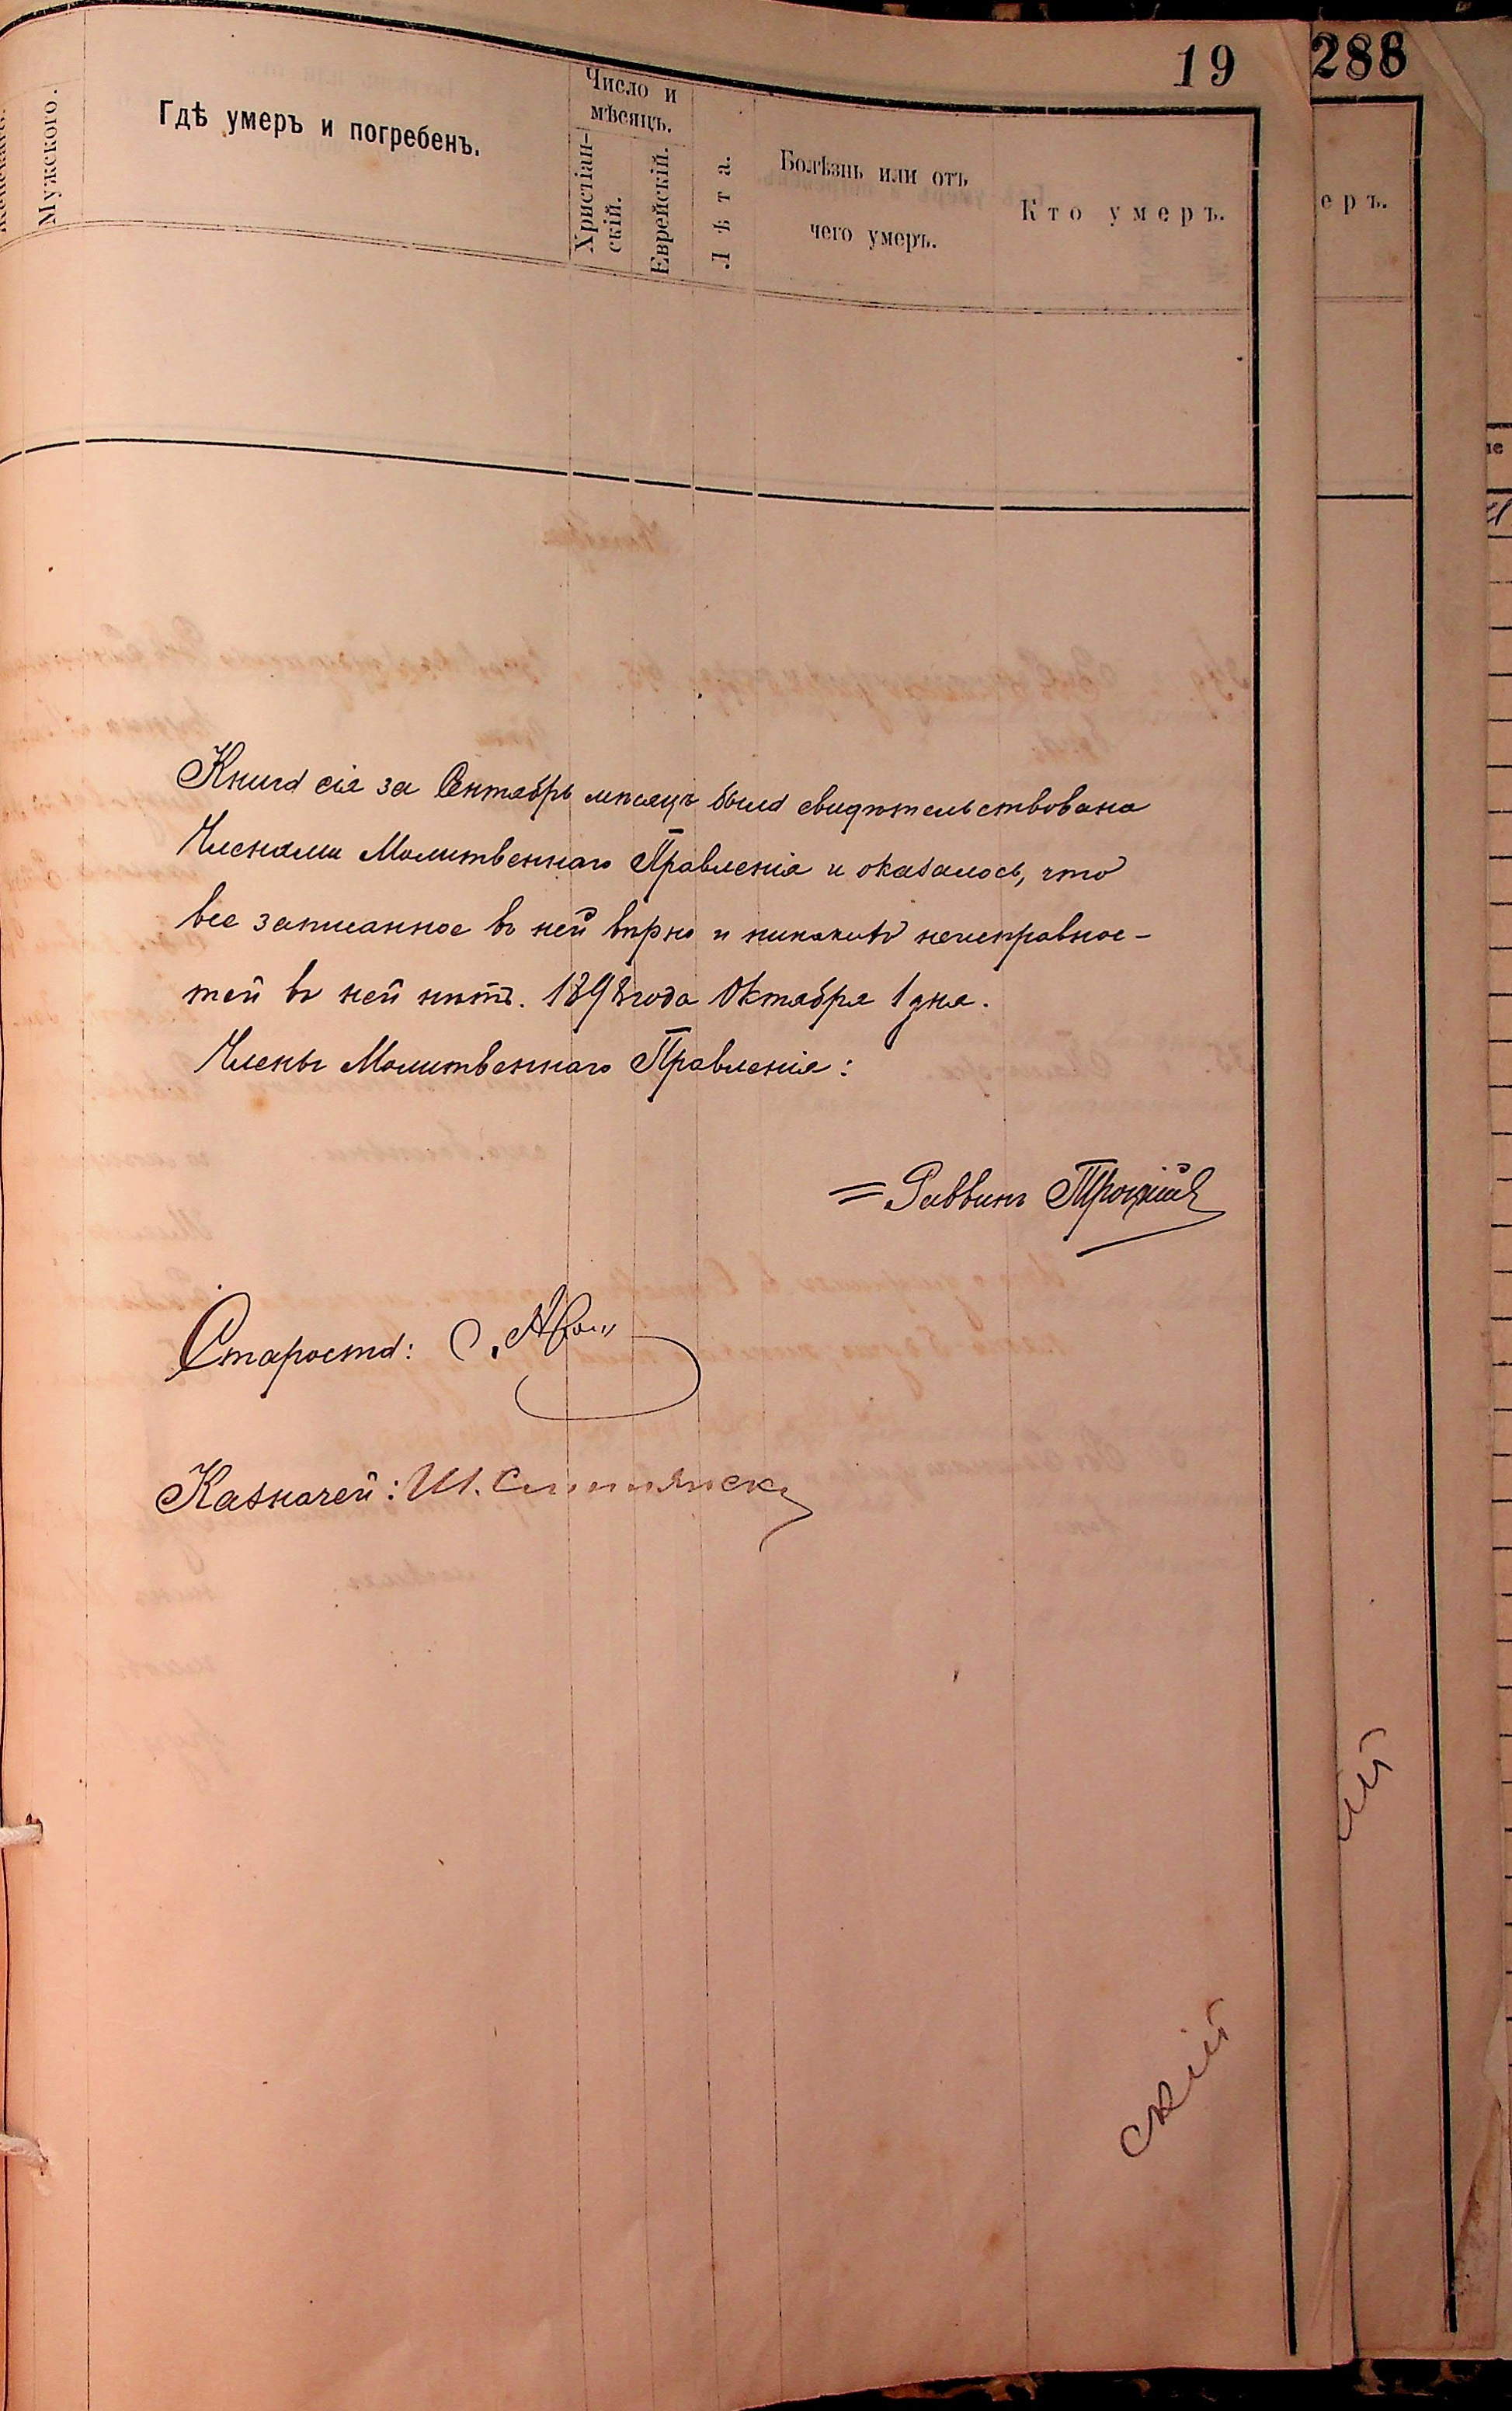 19
288
Мужского.
Гдѣ умеръ и погребенъ.
Число и
мѣсяцъ.
Христіан-
скій.
Еврейскій.
Лѣта.
Болѣзнь или отъ
чего умеръ.
Кто умеръ.
еръ.
Книга сія за Сентябрь мѣсяцъ была свидѣтельствована
Членами Молитвеннаго Правленія и оказалось, что
все записанное въ ней вѣрно и никакихъ неисправнос-
тей въ ней нѣтъ. 1898 года Октября 1 дня.
Члены Молитвеннаго Правленія:
= Раввинъ Троцкій
Староста:
Казначей: Ш.
скій
ій